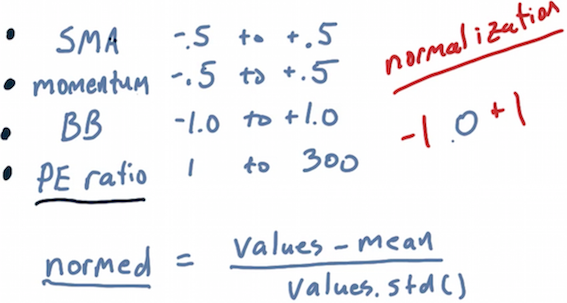 • SMA -.5 to +.5
• momentum -.5 to +.5
• BB -1.0 to +1.0
• PE ratio 1 to 300
normalization
-1 .0 +1
normed = values - mean
values.std()